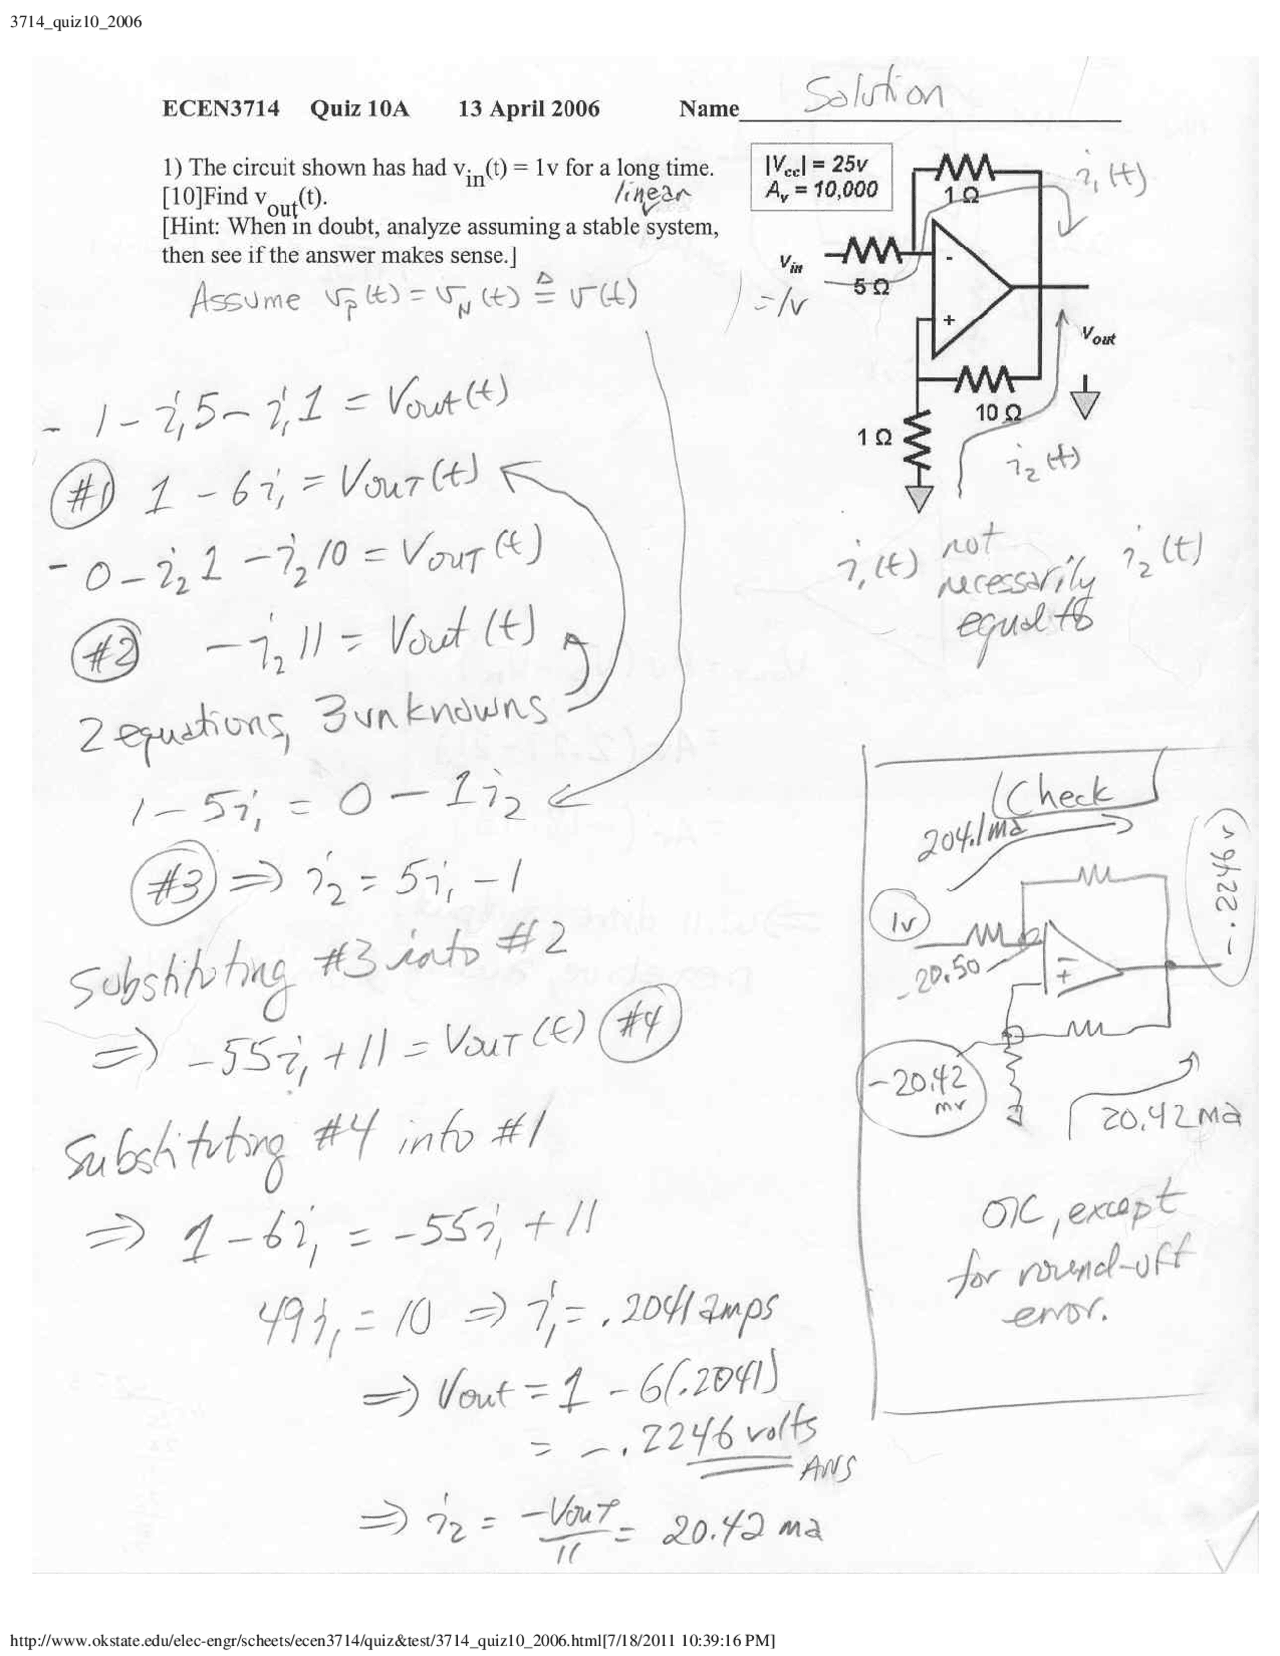 3714_quiz10_2006
Solution
ECEN3714 Quiz 10A 13 April 2006 Name
1) The circuit shown has had vin(t) = 1v for a long time.
[10]Find vout(t).
linear
[Hint: When in doubt, analyze assuming a stable system,
then see if the answer makes sense.]
|Vcc| = 25v
Av = 10,000
1 Ω
i1(t)
Vin
5 Ω
= 1v
-
+
Vout
10 Ω
1 Ω
i2(t)
Assume vP(t) = vN(t) ≜ v(t)
- 1 - i1 5 - i1 1 = Vout(t)
#1 1 - 6i1 = VOUT(t)
- 0 - i2 1 - i2 10 = VOUT(t)
#2 - i2 11 = Vout(t)
i1(t) not necessarily equal to i2(t)
2 equations, 3 unknowns
1 - 5i1 = 0 - 1i2
#3 ⇒ i2 = 5i1 - 1
Substituting #3 into #2
⇒ -55i1 + 11 = VOUT(t) #4
Substituting #4 into #1
⇒ 1 - 6i1 = -55i1 + 11
49i1 = 10 ⇒ i1 = .2041 amps
⇒ Vout = 1 - 6(.2041)
= -.2246 volts
ANS
⇒ i2 = -Vout/11 = 20.42 ma
Check
204.1ma
1v
-20.50
-.2246v
-20.42
mv
20.42ma
OK, except
for round-off
error.
http://www.okstate.edu/elec-engr/scheets/ecen3714/quiz&test/3714_quiz10_2006.html[7/18/2011 10:39:16 PM]